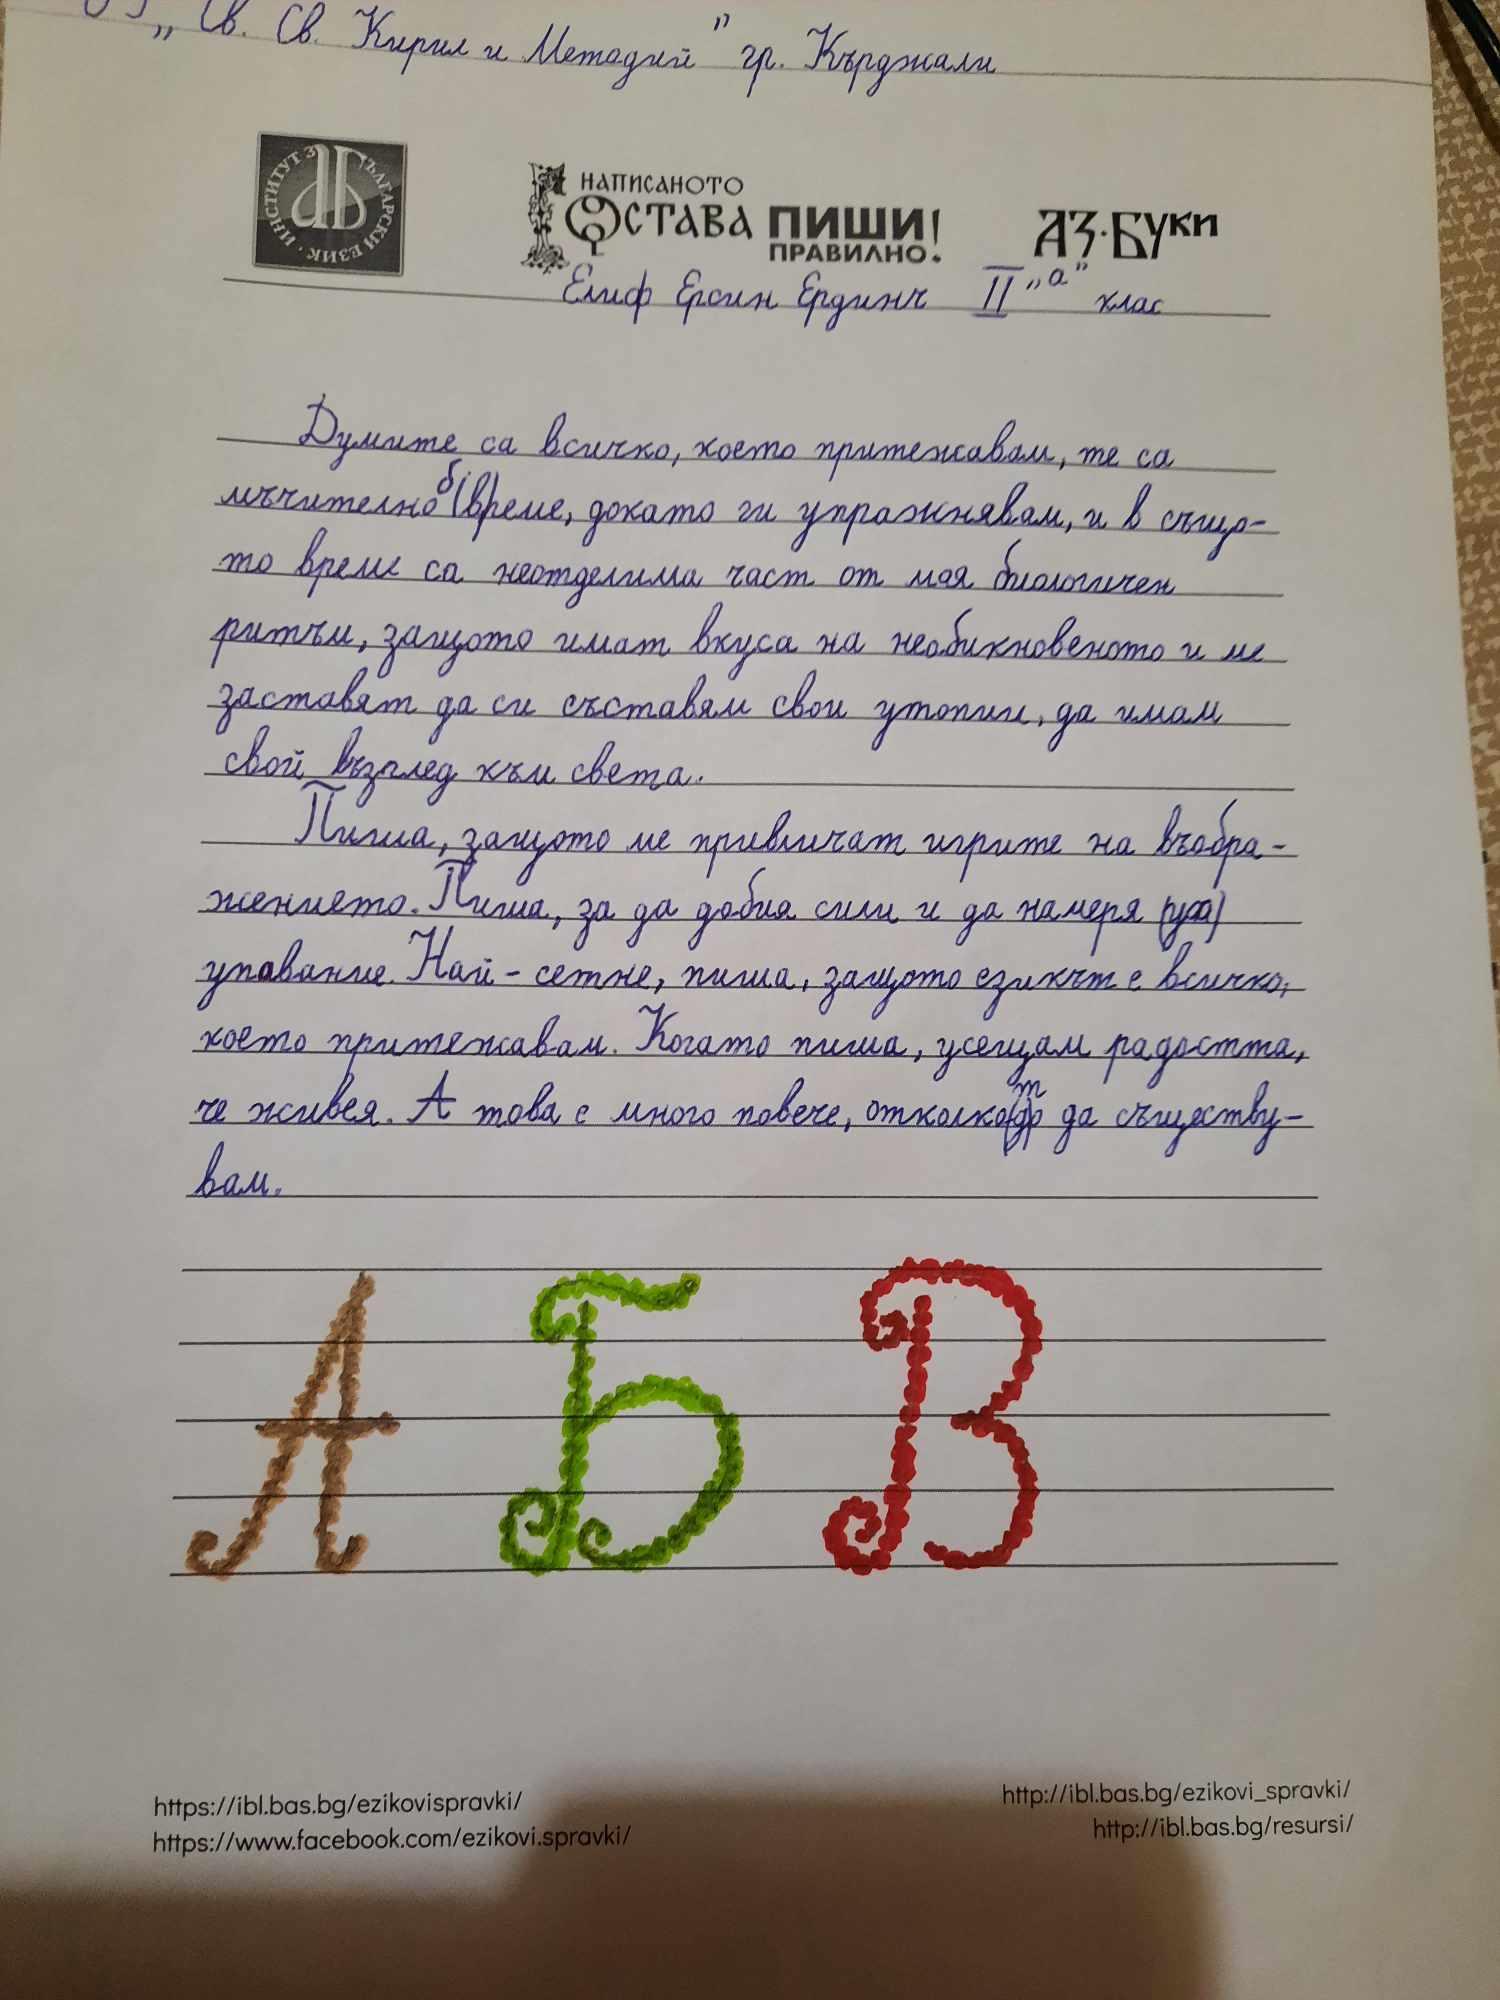 „Св. Св. Кирил и Методий" гр. Кърджали
ИНСТИТУТ ЗА БЪЛГАРСКИ ЕЗИК
НАПИСАНОТО
ОСТАВА ПИШИ
ПРАВИЛНО!
АЗ·БУКИ
Елиф Ерсин Ердинч II „а" клас
Думите са всичко, което притежавам, те са
мъчително б(в)реме, докато ги упражнявам, и в също-
то време са неотделима част от моя биологичен
ритъм, защото имат вкуса на необикновеното и ме
заставят да си съставям свои утопии, да имам
свой възглед към света.
Пиша, защото ме привличат игрите на въобра-
жението. Пиша, за да добия сили и да намеря
упование. Най-сетне, пиша, защото езикът е всичко,
което притежавам. Когато пиша, усещам радостта,
че живея. А това е много повече, отколкото да съществу-
вам.
А Б В
https://ibl.bas.bg/ezikovispravki/
https://www.facebook.com/ezikovi.spravki/
http://ibl.bas.bg/ezikovi_spravki/
http://ibl.bas.bg/resursi/